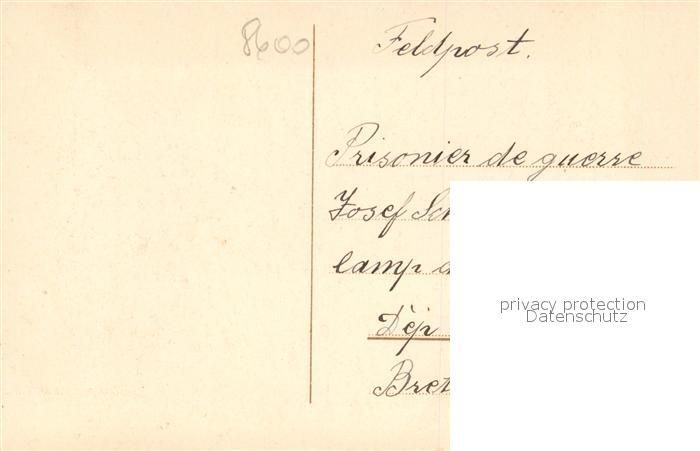 8600
Feldpost.
Prisonier de guerre
Josef
Camp
Dép
privacy protection
Datenschutz